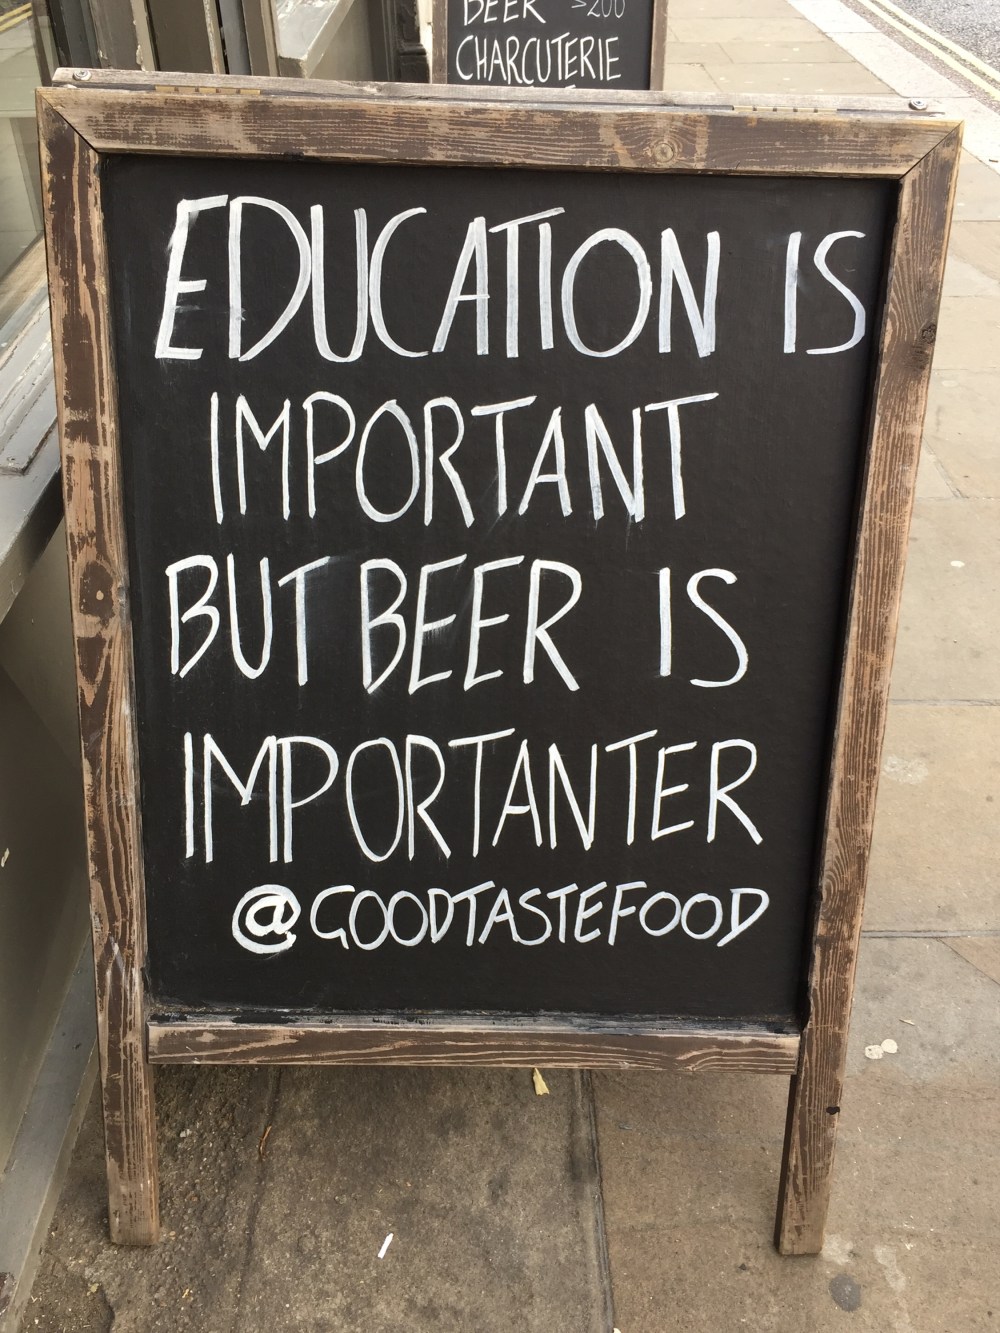 BEER >200
CHARCUTERIE
EDUCATION IS
IMPORTANT
BUT BEER IS
IMPORTANTER
@GOODTASTEFOOD